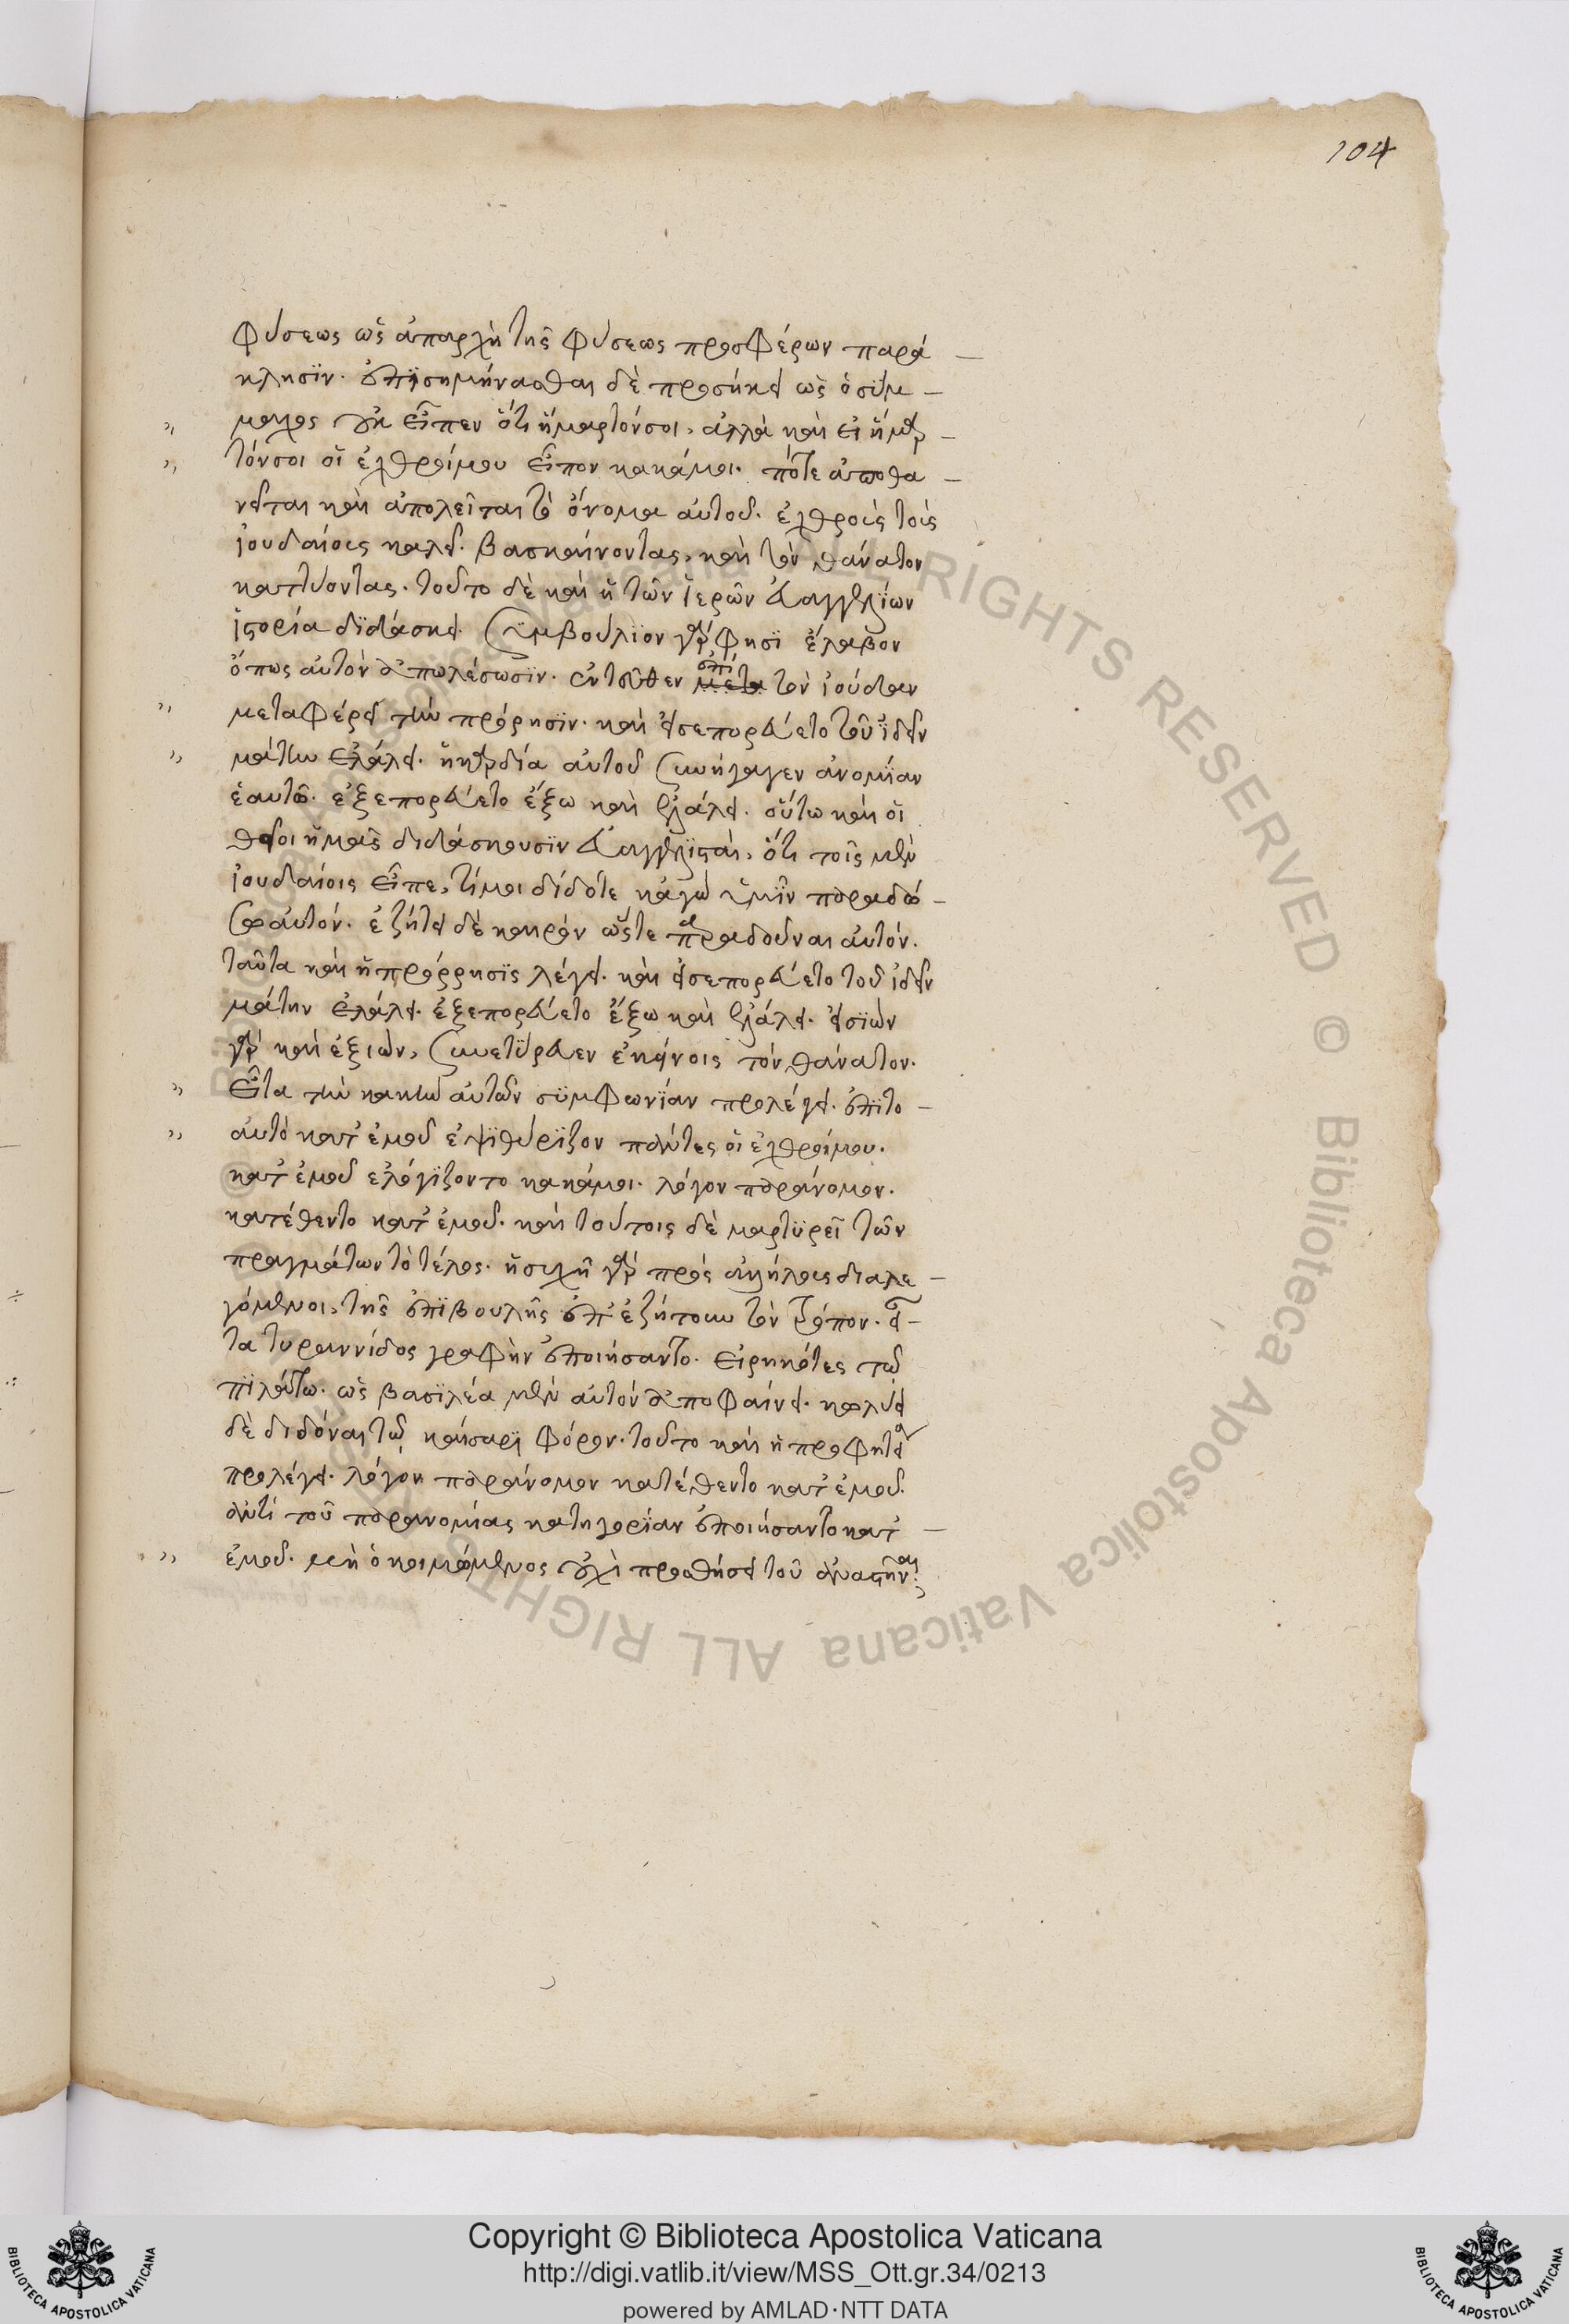 104
φύσεως ὡς ἀπαρχὴ τῆς φύσεως προσφέρων παρά
κλησϊν. ἐπϊσημήνασθαι δὲ προσήκει ὡς ὁ σύμ
μαχος οὐκ εἶπεν ὅτι ἥμαρτόν σοι, ἀλλὰ καὶ εἰ ἥμαρ
τόν σοι οἱ ἐχθροί μου εἶπον κακά μοι. πότε ἀποθα
νεῖται καὶ ἀπολεῖται τὸ ὄνομα αὐτοῦ. ἐχθροὺς τοὺς
ἰουδαίους καλεῖ. βασκαίνοντας, καὶ τὸν θάνατον
καττύοντας. τοῦτο δὲ καὶ ἡ τῶν ἱερῶν εὐαγγελίων
ἱστορία διδάσκει. συμβούλϊον γάρ φησϊ ἔλαβον
ὅπως αὐτὸν ἀπωλέσωσϊν. ἐντεῦθεν μετα ἐπὶ τὸν ἰούδαν
μεταφέρει τὴν πρόρησϊν. καὶ εἰσεπορεύετο τοῦ ἰδεῖν
μάτην ἐλάλει. ἡ καρδία αὐτοῦ συνήγαγεν ἀνομϊαν
ἑαυτῶ. ἐξεπορεύετο ἔξω καὶ ἐλάλει. οὕτω καὶ οἱ
θεῖοι ἡμᾶς διδάσκουσϊν εὐαγγελϊσταὶ, ὅτι τοῖς μὲν
ἰουδαίοις εἶπε, τί μοι δίδοτε κἀγὼ ὑμῖν παραδώ
σω αὐτόν. ἐζήτει δὲ καιρὸν ὥστε παραδοῦναι αὐτόν.
ταῦτα καὶ ἡ πρόρρησϊς λέγει. καὶ εἰσεπορεύετο τοῦ ἰδεῖν
μάτην ἐλάλει. ἐξεπορεύετο ἔξω καὶ ἐλάλει. εἰσϊὼν
γὰρ καὶ ἐξιὼν, συνετύρευεν ἐκείνοις τὸν θάνατον.
Εἶτα τὴν κακὴν αὐτῶν συμφωνϊαν προλέγει. ἐπϊτο
αυτὸ κατ' ἐμοῦ ἐψϊθύρϊζον πάντες οἱ ἐχθροί μου.
κατ' ἐμοῦ ἐλογίζοντο κακά μοι. λόγον παράνομον.
κατέθεντο κατ' ἐμοῦ. καὶ τούτοις δὲ μαρτυρεῖ τῶν
πραγμάτων τὸ τέλος. ἡσυχῆ γὰρ πρὸς ἀλλήλους διαλε
γόμενοι, τῆς ἐπϊβουλῆς ἐπεζήτουν τὸν τρόπον. εἶ
τα τυραννίδος γραφὴν ἐποιήσαντο. εἰρηκότες τῶ
πϊλάτω. ὡς βασϊλέα μὲν αὐτὸν ἀποφαίνει. κωλύει
δὲ διδόναι τῶ καίσαρϊ φόρον. τοῦτο καὶ ἡ προφητεία
προλέγει. λόγον παράνομον κατέθεντο κατ' ἐμοῦ.
ἀντὶ τοῦ παρανομίας κατηγορϊαν ἐποιήσαντο κατ'
ἐμοῦ. μὴ ὁ κοιμώμενος οὐχὶ προσθήσει τοῦ ἀναστῆναι;
Copyright © Biblioteca Apostolica Vaticana
http://digi.vatlib.it/view/MSS_Ott.gr.34/0213
powered by AMLAD·NTT DATA